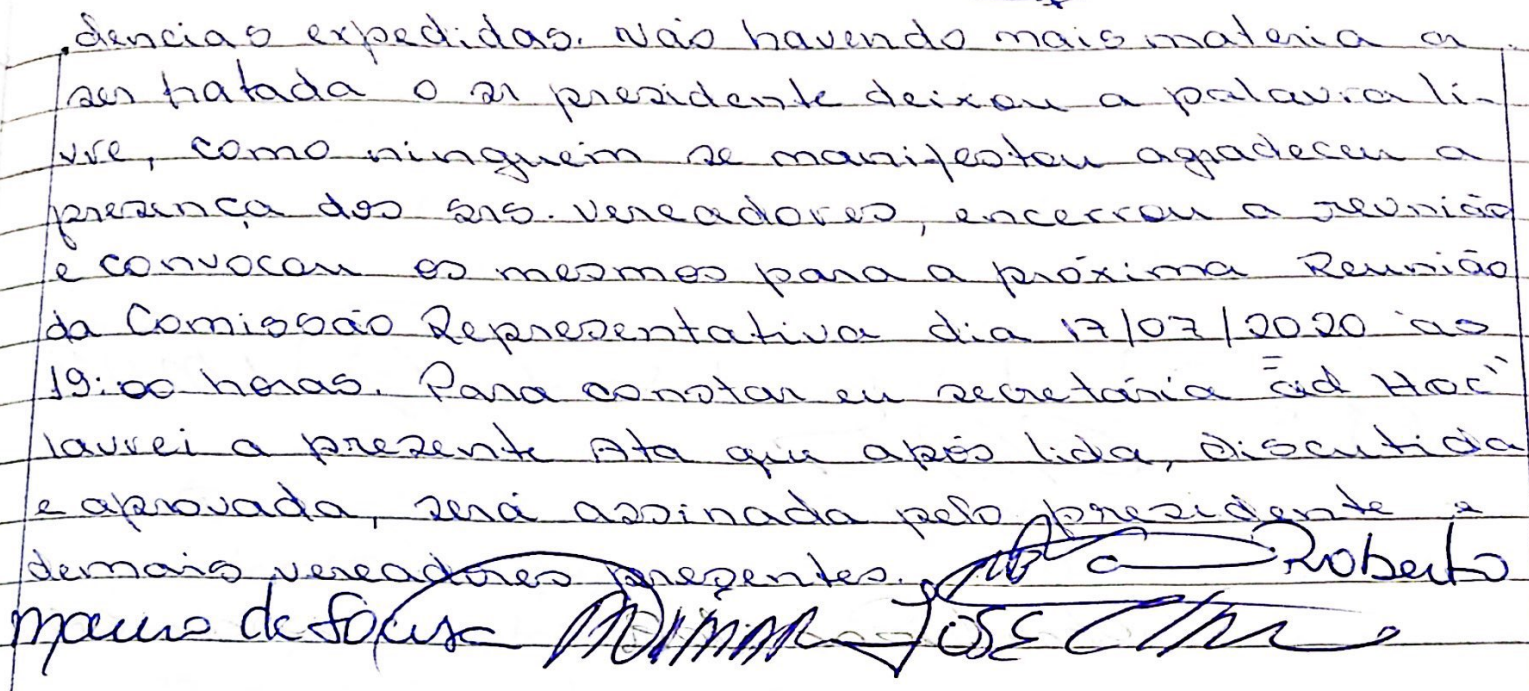 dencias expedidas. Não havendo mais materia a
ser tratada o sr presidente deixou a palavra li-
vre, como ninguem se manifestou agradeceu a
presença dos srs. vereadores, encerrou a reunião
e convocou os mesmos para a próxima Reunião
da Comissão Representativa dia 17/07/2020 as
19:00 horas. Para constar eu secretária "ad Hoc"
lavrei a presente Ata que após lida, discutida
e aprovada, será assinada pelo presidente e
demais vereadores presentes. Roberto
Mauro de Souza José